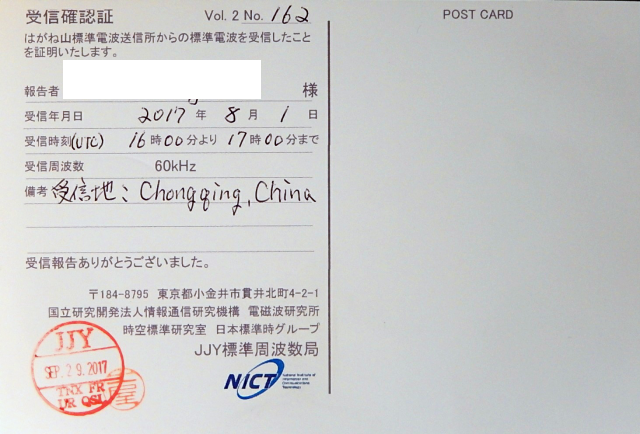 受信確認証 Vol. 2 No. 162
はがね山標準電波送信所からの標準電波を受信したこと
を証明いたします。
報告者 様
受信年月日 2017 年 8 月 1 日
受信時刻(UTC) 16時00分より 17時00分まで
受信周波数 60kHz
備考 受信地：Chongqing, China
受信報告ありがとうございました。
〒184-8795 東京都小金井市貫井北町4-2-1
国立研究開発法人情報通信研究機構 電磁波研究所
時空標準研究室 日本標準時グループ
JJY標準周波数局
JJY
SEP. 29. 2017
TNX FR
UR QSL
NICT
National Institute of
Information and
Communications
Technology
POST CARD